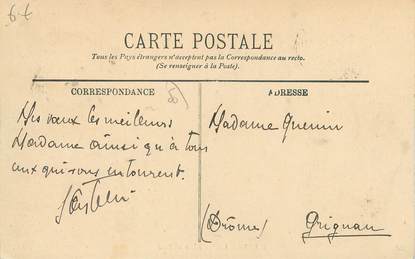 6€
CARTE POSTALE
Tous les Pays étrangers n'acceptent pas la Correspondance au recto.
(Se renseigner à la Poste).
CORRESPONDANCE
Mes vœux les meilleurs
Madame ainsi qu'à tous
ceux qui vous entourent.
ADRESSE
Madame Guenin
(Drôme) Grignan